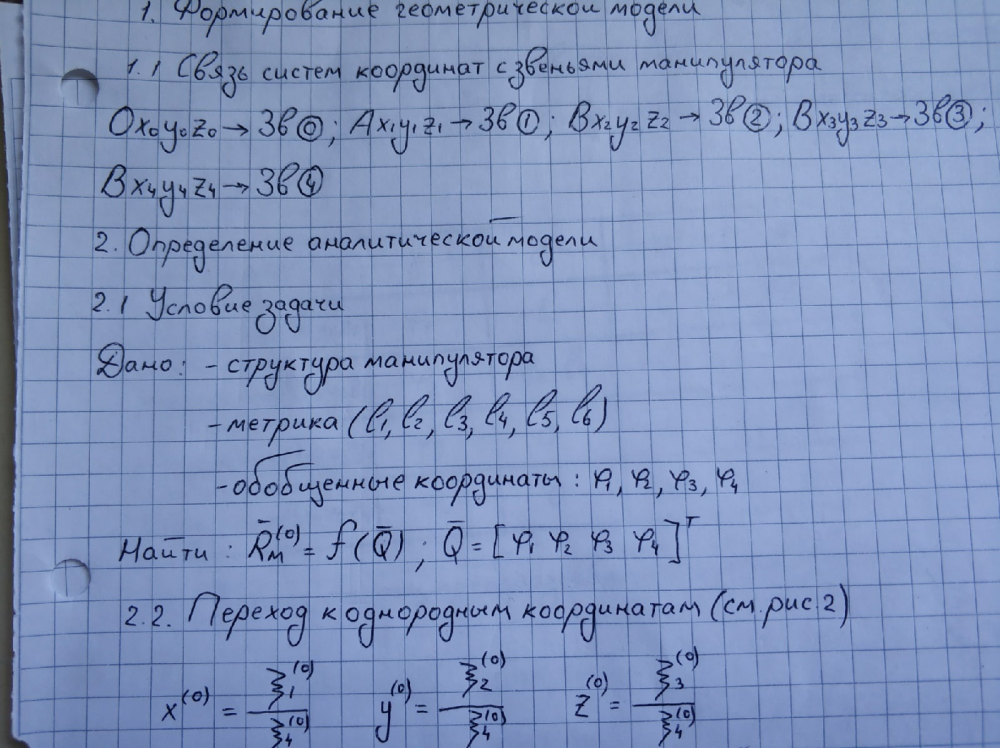 1. Формирование геометрической модели
1.1 Связь систем координат с звеньями манипулятора
Ox₀y₀z₀ → Зв ⓪; Ax₁y₁z₁ → Зв ①; Bx₂y₂z₂ → Зв ②; Bx₃y₃z₃ → Зв ③;
Bx₄y₄z₄ → Зв ④
2. Определение аналитической модели
2.1 Условие задачи
Дано: - структура манипулятора
- метрика (l₁, l₂, l₃, l₄, l₅, l₆)
- обобщенные координаты: φ₁, φ₂, φ₃, φ₄
Найти: R̄ₘ⁽⁰⁾ = f(Q̄); Q̄ = [φ₁ φ₂ φ₃ φ₄]ᵀ
2.2. Переход к однородным координатам (см. рис. 2)
x⁽⁰⁾ = ξ₁⁽⁰⁾/ξ₄⁽⁰⁾ y⁽⁰⁾ = ξ₂⁽⁰⁾/ξ₄⁽⁰⁾ z⁽⁰⁾ = ξ₃⁽⁰⁾/ξ₄⁽⁰⁾